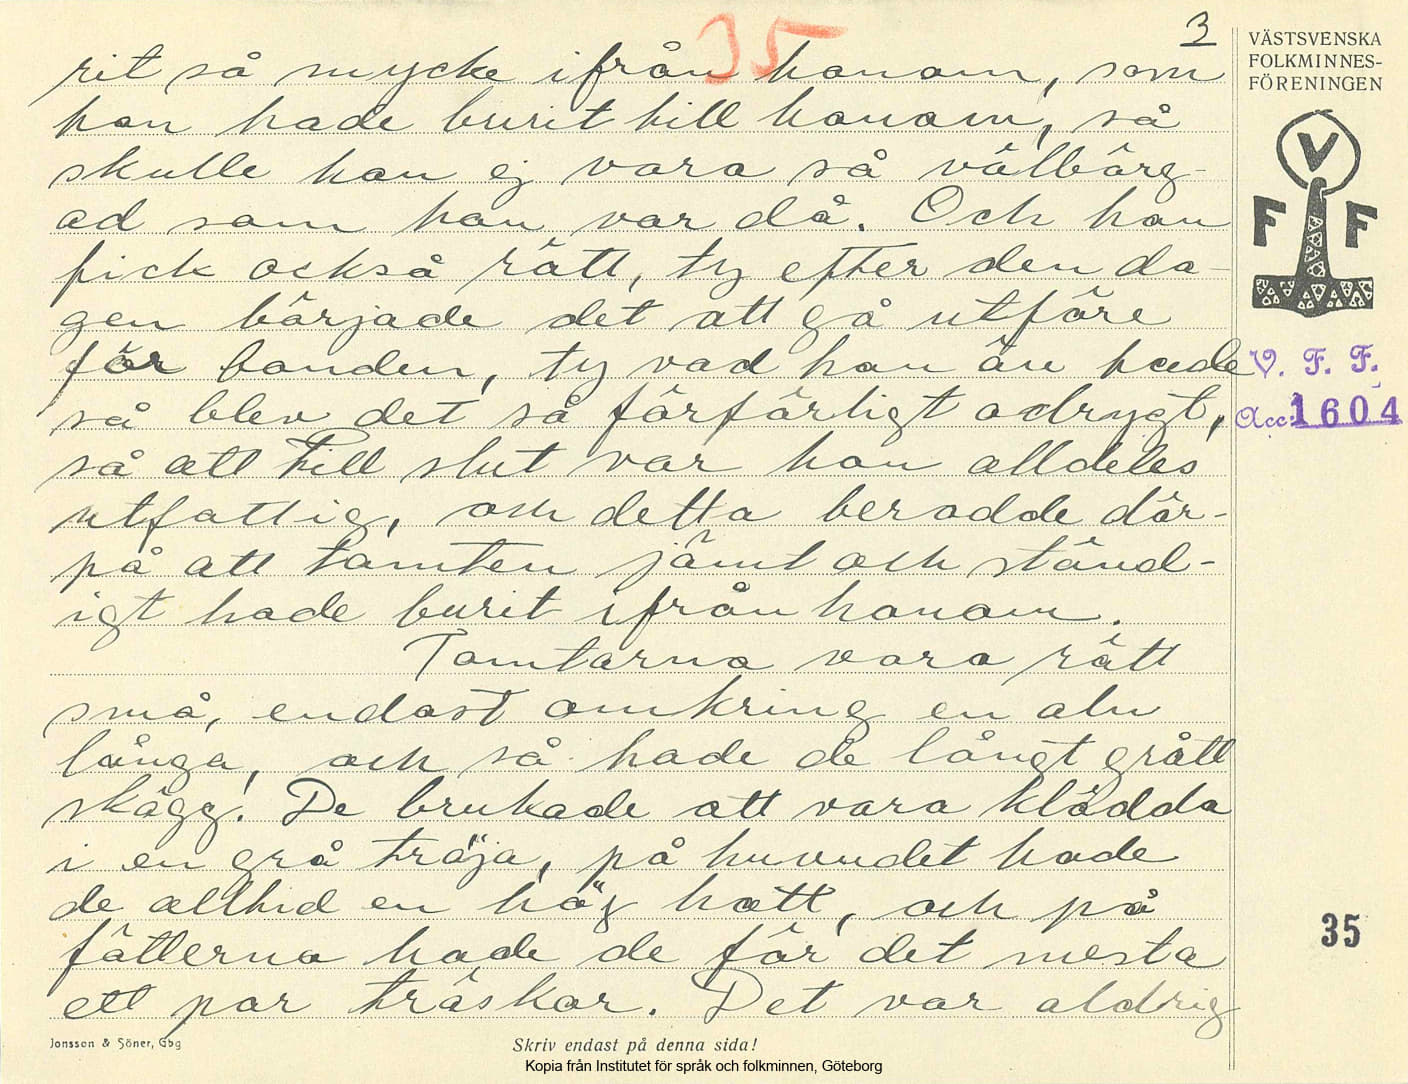 35
3
rit så mycke ifrån honom, som
han hade burit till honom, så
skulle han ej vara så välbärg-
ad som han var då. Och han
fick också rätt, ty efter den da-
gen började det att gå utföre
för bonden, ty vad han än hade
så blev det så förfärligt odrygt,
så att till slut var han alldeles
utfattig, och detta berodde där-
på att tomten jämt och ständ-
igt hade burit ifrån honom.
Tomtarna voro rätt
små, endast omkring en aln
långa, och så hade de långt grått
skägg. De brukade att vara klädda
i en grå tröja, på huvudet hade
de alltid en hög hatt, och på
fötterna hade de för det mesta
ett par träskor. Det var aldrig
VÄSTSVENSKA
FOLKMINNES-
FÖRENINGEN
V
F F
V. F. F.
Acc: 1604
35
Jonsson & Söner, Gbg
Skriv endast på denna sida!
Kopia från Institutet för språk och folkminnen, Göteborg